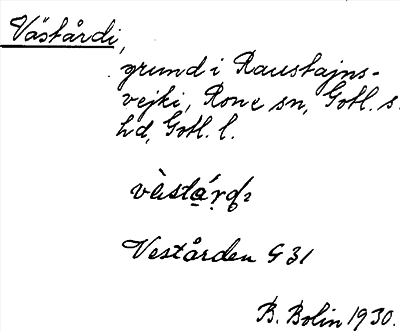 Västårdi,
grund i Raustajns-
vejki, Rone sn, Gotl. s.
hd, Gotl. l.
Vestården G 31
B. Bolin 1930.